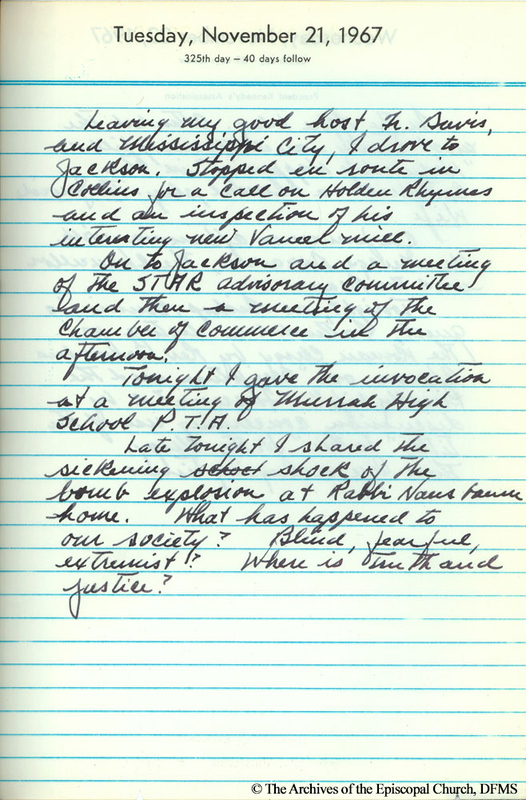 Tuesday, November 21, 1967
325th day — 40 days follow
Leaving my good host Fr. Davis,
and Mississippi City, I drove to
Jackson. Stopped en route in
Collins for a call on Holden Rhymes
and an inspection of his
interesting new Vaneel mill.
On to Jackson and a meeting
of the STAR advisorary committee
and then a meeting of the
Chamber of Commerce in the
afternoon.
Tonight I gave the invocation
at a meeting of Murrah High
School P.T.A.
Late tonight I shared the
sickening school shock of the
bomb explosion at Rabbi Nausbaum
home. What has happened to
our society? Blind, fearful,
extremist!? Where is truth and
justice?
© The Archives of the Episcopal Church, DFMS